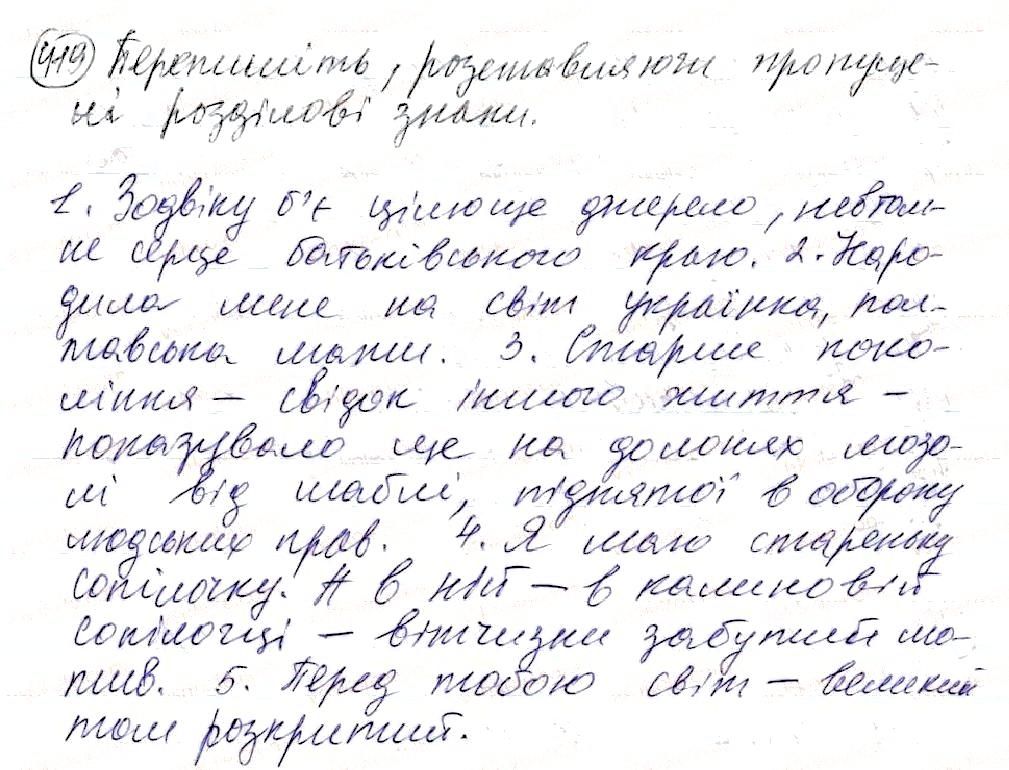 419 Перепишіть, розставляючи пропуще-
ні розділові знаки.
1. Зодвіку б'є цілюще джерело, невтом-
не серце батьківського краю. 2. Наро-
дила мене на світ українка, пол-
тавська мати. 3. Старше поко-
ління – свідок іншого життя –
показувало ще на долонях мозо-
лі від шаблі, піднятої в оборону
людських прав. 4. Я маю стареньку
сопілочку. А в ній – в калиновій
сопілочці – вітчизни забутий мо-
тив. 5. Перед тобою світ – великий
том розкритий.